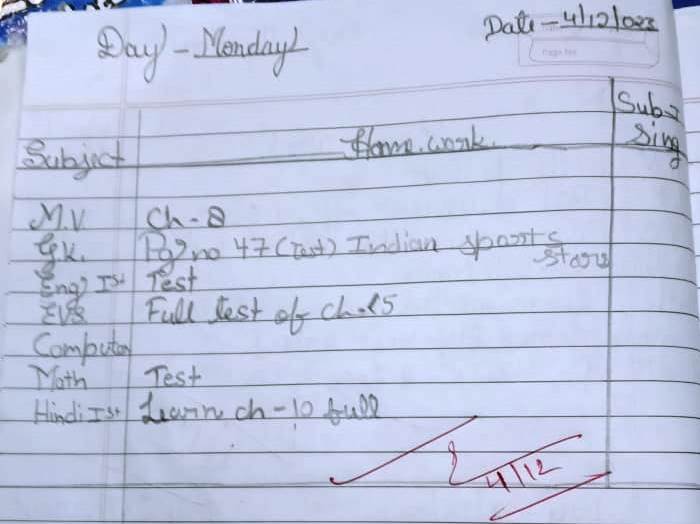 Date - 4/12/023
Page No.
Day - Monday
Subject Home.work. Sub.T Sing
M.V Ch - 8
G.K. Pg no 47 (Test) Indian sports stars
Eng Ist Test
EVS Full test of ch.15
Computer
Math Test
Hindi Ist Learn ch - 10 full
4/12